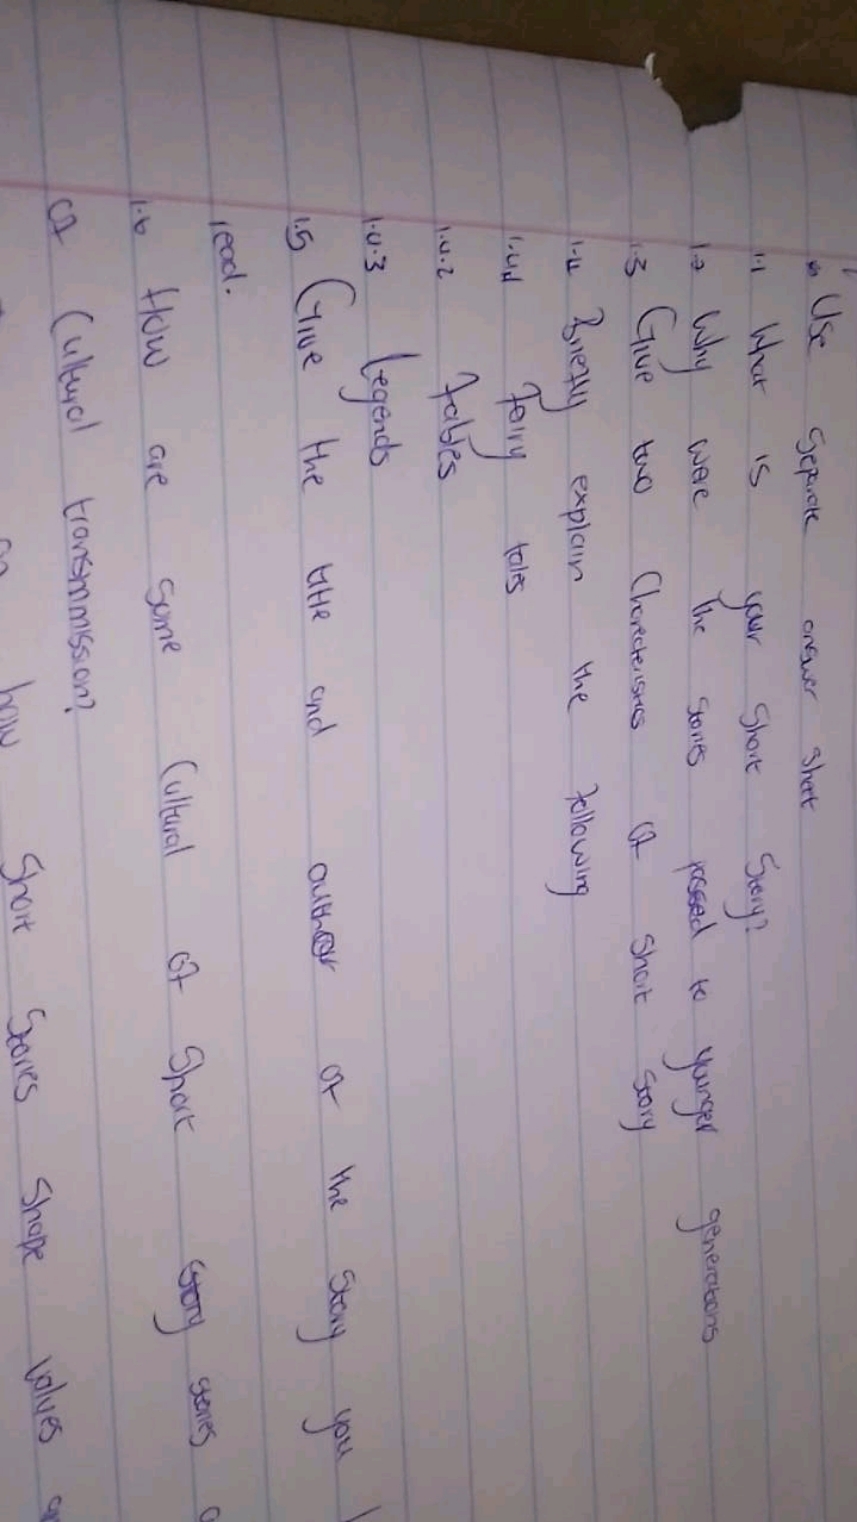 Use Separate answer sheet
1.1 What is your Short Story?
1.2 Why were the stories passed to younger generations
1.3 Give two Characteristics of short story
1.4 Briefly explain the following
1.4.1 fairy tales
1.4.2 fables
1.4.3 Legends
1.5 Give the title and author of the story you
read.
1.6 How are some Cultural of Short story stories
of Cultural transmmission?
how Short Stories Shape values